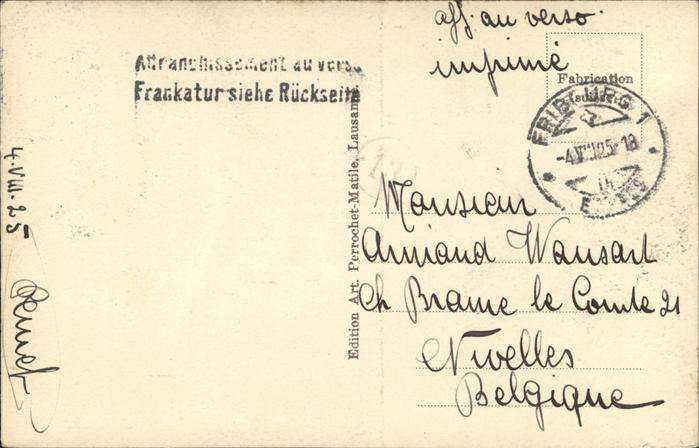 aff. au verso.
imprimé
Affranchissement au verso
Frankatur siehe Rückseite
Fabrication
FRIBOURG 1
-4.VIII.25-18
Edition Art. Perrochet-Matile, Lausanne
4.VIII.25
Monsieur
Armand Wansart
Ch Braine le Comte 21
Nivelles
Belgique